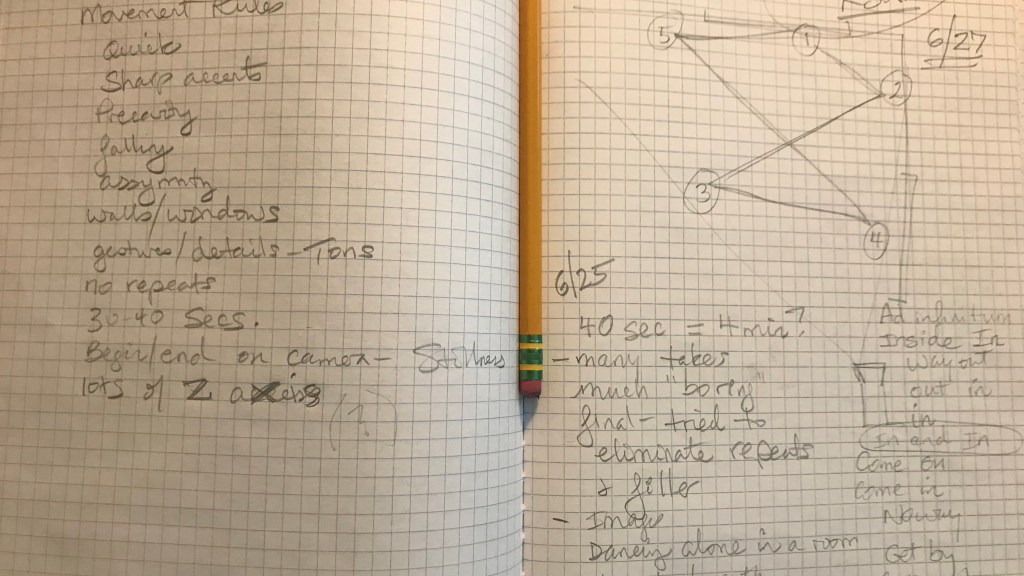 Movement Rules
Quick
Sharp accents
Precarity
falling
assymnty
walls/windows
gestures/details - Tons
no repeats
30-40 Secs.
Begin/end on camera - Stillness
lots of Z axis
(?)
5
1
2
3
4
6/27
6/25
40 sec = 4 min?
- many takes
much "boring"
final - tried to
eliminate repeats
& filler
- Image
Dancing alone in a room
Ad infinitum
Inside In
way out
out in
in
In and In
Come on
Come in
Get by